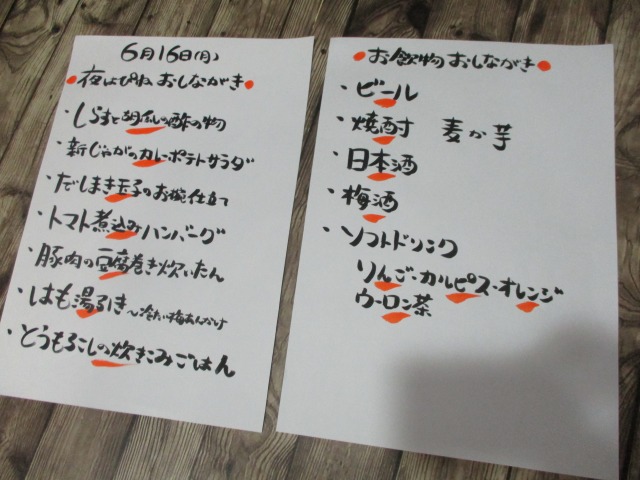 6月16日(月)
夜はぴね おしながき
・しらすと胡瓜の酢の物
・新じゃがのカレーポテトサラダ
・だしまき玉子のお椀仕立て
・トマト煮込みハンバーグ
・豚肉の豆腐巻き炊いたん
・はも湯引き〜冷たい梅あんかけ
・とうもろこしの炊きこみごはん
お飲物おしながき
・ビール
・焼酎 麦か芋
・日本酒
・梅酒
・ソフトドリンク
りんご・カルピス・オレンジ
ウーロン茶